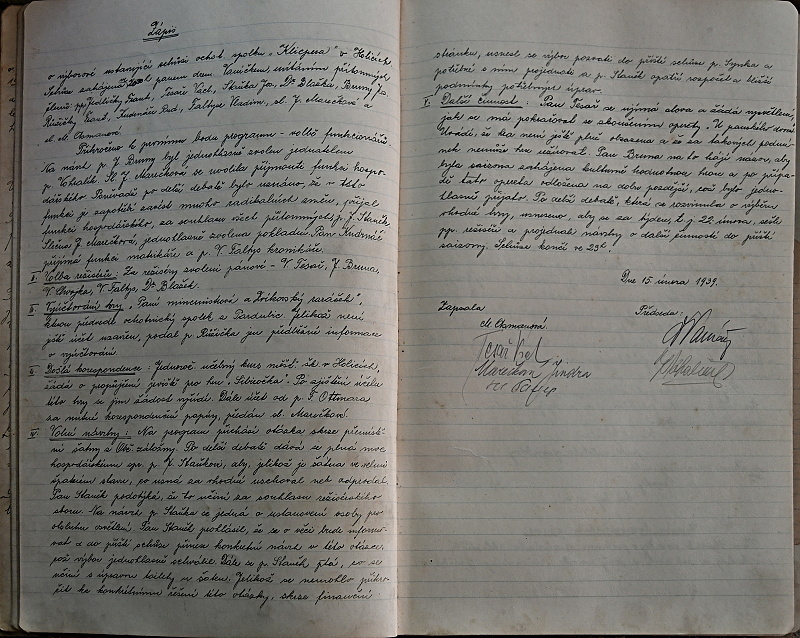 Zápis
o výborové ustavující schůzi ochot. spolku „Klicpera" v Holicích.
Schůze zahájena panem dem. Vaníčkem, uvítáním přítomných
členů: pp. Jedličky Zdeň., Tesaře Vács., Staňka Jos., Dr. Blažka, Bruny Jo.
Růžičky Zdeň., Kudrnáče Rud., Faltyse Vladim., sl. J. Marečkové a
sl. el. Osmanové.
Přikročeno k prvnímu bodu programu - volbě funkcionářů.
Na návrh p. J. Bruny byl jednohlasně zvolen jednatelem
p. Vohralík. Sl. J. Marečková se uvolila přijmouti funkci hospo-
dářského. Poněvadž po delší debatě bylo uznáno, že v této
funkci je zapotřebí zavést mnoho radikálních změn, přijal
funkci hospodářského, za souhlasu všech přítomných, p. J. Staněk.
Slečna J. Marečková, jednohlasně zvolena pokladní. Pan Kudrnáč
přijímá funkci matrikáře a p. V. Faltys kronikáře.
II. Volba režisérů: Za režiséry zvoleni pánové - V. Tesař, J. Bruna,
V. Chvojka, V. Faltys, Dr. Blažek.
III. Vyúčtování hry „Paní mincmistrová a Zvíkovský rarášek",
kterou předvedl ochotnický spolek z Pardubic. Jelikož není
ještě účet uzavřen, podal p. Růžička jen předběžné informace
o vyúčtování.
IV. Došlá korespondence: Jednoroč. učební kurs měšť. šk. v Holicích,
žádá o propůjčení jeviště pro hru „Sibiřačka". Po zjištění účelu
této hry se jim žádost vyřídí. Dále účet od p. F. Ottmara
za nutné korespondenční papíry, předán sl. Marečkové.
IV. Volné návrhy: Na program přichází otázka skrze přemístě-
ní šatny z Obč. záložny. Po delší debatě dává se plná moc
hospodářskému spr. p. J. Staňkovi, aby, jelikož je šatna ve velmi
špatném stavu, co uzná za vhodné uschoval neb odprodal.
Pan Staněk podotýká, že to učiní za souhlasu režisérského
sboru. Na návrh p. Staňka se jedná o ustanovení osoby pro
obsluhu osvětlení. Pan Staněk prohlásil, že se o věci bude informo-
vat a do příští schůze přinese konkrétní návrh v této otázce,
což výbor jednohlasně schvaluje. Dále se p. Staněk ptá, co se
učiní s úpravou toilety ve šatně. Jelikož se nemohlo přikro-
čit ke konkrétnímu řešení této otázky, skrze finanční
stránku, usnesl se výbor pozvati do příští schůze p. Synka a
potřebné s ním projednati a p. Staněk opatří rozpočet a bližší
podmínky potřebných úprav.
V. Další činnost: Pan Tesař se ujímá slova a žádá vysvětlení,
jak se má pokračovat se zkouškami operety „U panského dvora".
Uvádí, že hra není ještě plně obsazena a že za takových podmí-
nek nemůže hru režírovat. Pan Bruna na to hájí názor, aby
byla saisona zahájena kulturně hodnotnou hrou a po přípa-
dě tato opereta odložena na dobu pozdější, což bylo jedno-
hlasně přijato. Po delší debatě, která se rozvinula o výběru
vhodné hry, usneseno, aby se za týden, t. j. 22. února, sešli
pp. režiséři a projednali návrhy o další činnosti do příští
saisony. Schůze končí ve 23 h.
Dne 15. února 1939.
Zapsala
el. Osmanová.
Předseda:
Marečková Jindra